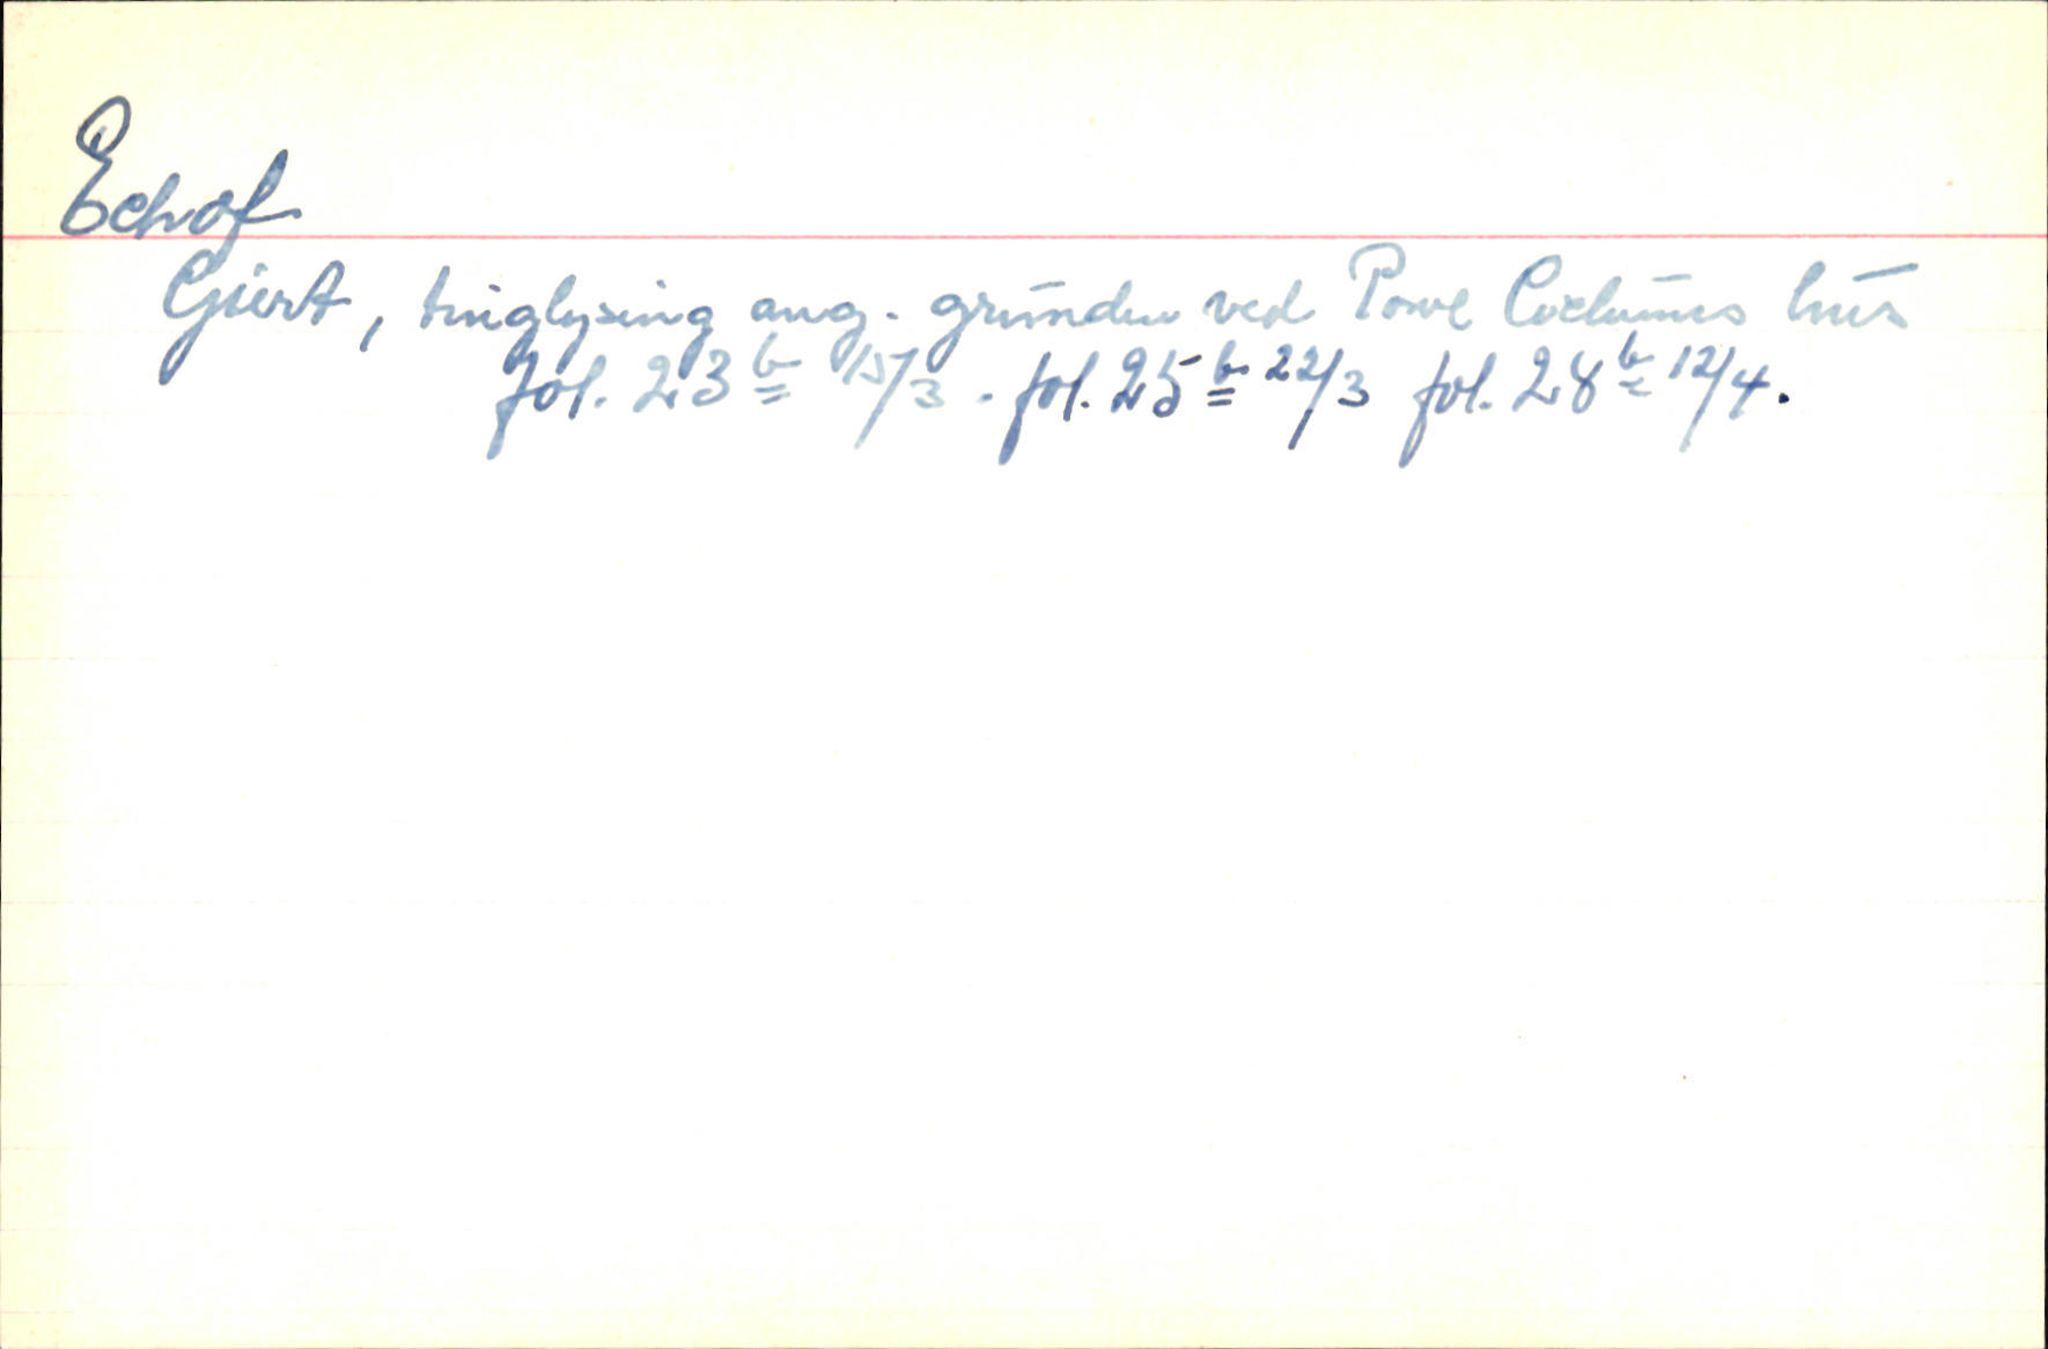 Echof
Giert, tinglysing ang. grunden ved Powl hus
fol. 23b 15/3. fol. 25b 22/3 fol. 28b 12/4.